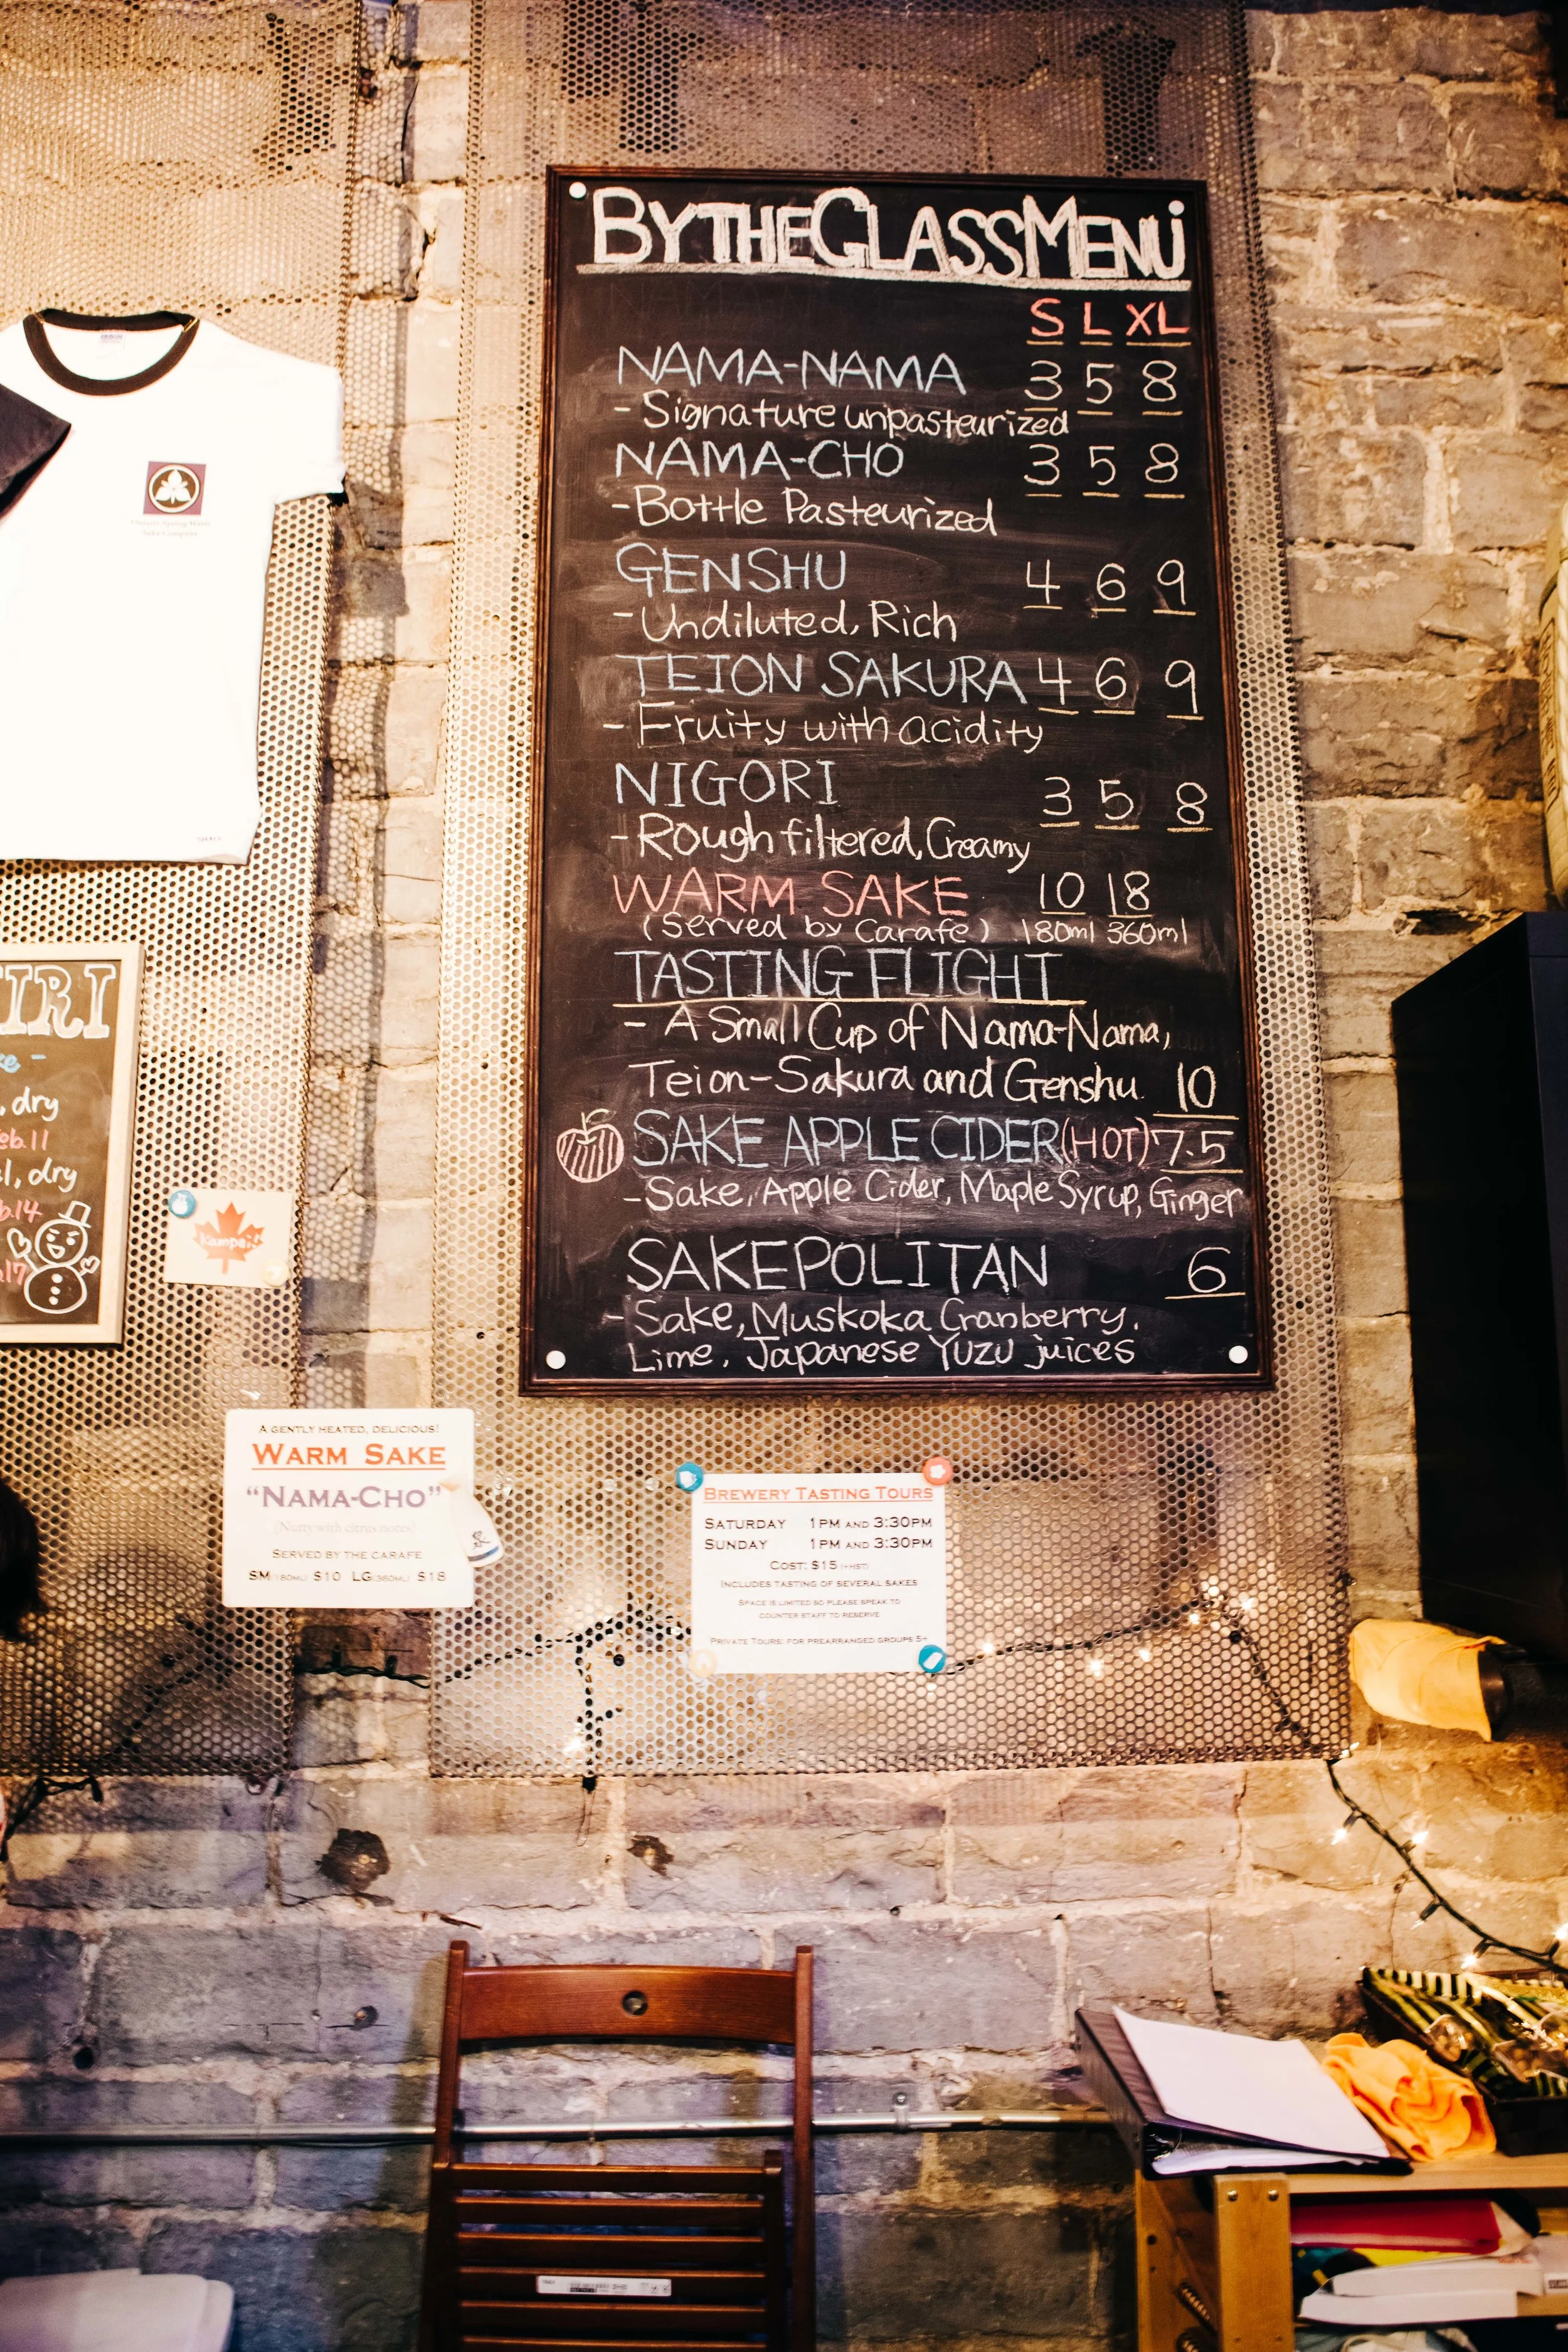 BY THE GLASS MENU
S L XL
NAMA-NAMA 3 5 8
- Signature unpasteurized
NAMA-CHO 3 5 8
- Bottle Pasteurized
GENSHU 4 6 9
- Undiluted, Rich
TEION SAKURA 4 6 9
- Fruity with acidity
NIGORI 3 5 8
- Rough filtered, Creamy
WARM SAKE 10 18
(Served by Carafe) 180ml 360ml
TASTING FLIGHT
- A Small Cup of Nama-Nama,
Teion-Sakura and Genshu. 10
SAKE APPLE CIDER (HOT) 7.5
- Sake, Apple Cider, Maple Syrup, Ginger
SAKEPOLITAN 6
- Sake, Muskoka Cranberry,
Lime, Japanese Yuzu juices
Ontario Spring Water
Sake Company
SMALL
, dry
Feb.11
, dry
Kampai!
A GENTLY HEATED, DELICIOUS!
WARM SAKE
"NAMA-CHO"
(Nutty with citrus notes)
SERVED BY THE CARAFE
SM (180ML) $10 LG (360ML) $18
BREWERY TASTING TOURS
SATURDAY 1PM AND 3:30PM
SUNDAY 1PM AND 3:30PM
COST: $15 (+HST)
INCLUDES TASTING OF SEVERAL SAKES
SPACE IS LIMITED SO PLEASE SPEAK TO
COUNTER STAFF TO RESERVE
PRIVATE TOURS: FOR PREARRANGED GROUPS 5+